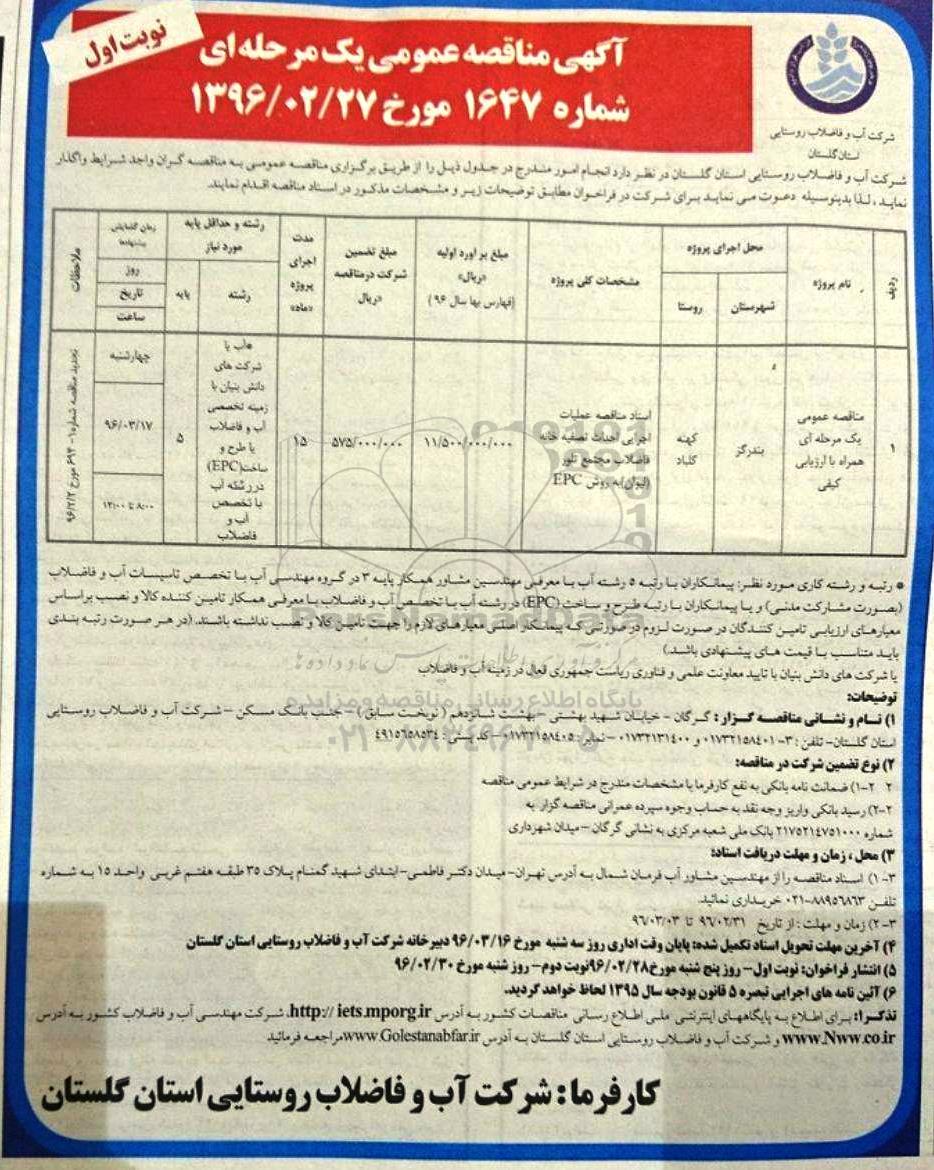 نوبت اول
آگهی مناقصه عمومی یک مرحله ای
شماره ۱۶۴۷ مورخ ۱۳۹۶/۰۲/۲۷
شرکت آب و فاضلاب روستایی
استان گلستان
شرکت آب و فاضلاب روستایی استان گلستان در نظر دارد انجام امور مندرج در جدول ذیل را از طریق برگزاری مناقصه عمومی به مناقصه گران واجد شرایط واگذار
نماید، لذا بدینوسیله دعوت می نماید برای شرکت در فراخوان مطابق توضیحات زیر و مشخصات مذکور در اسناد مناقصه اقدام نمایند.
ردیف
نام پروژه
محل اجرای پروژه
شهرستان
روستا
مشخصات کلی پروژه
مبلغ برآورد اولیه
«ریال»
(فهارس بها سال ۹۶)
مبلغ تضمین
شرکت در مناقصه
«ریال
مدت
اجرای
پروژه
«ماه»
رشته و حداقل پایه
مورد نیاز
رشته
پایه
زمان گشایش
پیشنهادها
روز
تاریخ
ساعت
ملاحظات
۱
مناقصه عمومی
یک مرحله ای
همراه با ارزیابی
کیفی
بندرگز
کهنه
کلباد
اسناد مناقصه عملیات
اجرایی احداث تصفیه خانه
فاضلاب مجتمع تلور
(لیوان) به روش EPC
۱۱/۵۰۰/۰۰۰/۰۰۰
۵۷۵/۰۰۰/۰۰۰
۱۵
«آب یا
شرکت های
دانش بنیان با
زمینه تخصصی
آب و فاضلاب
یا طرح و
ساخت(EPC)
در رشته آب
با تخصص
آب و
فاضلاب
۵
چهارشنبه
۹۶/۰۳/۱۷
۸:۰۰ تا ۱۲:۰۰
تجدید مناقصه شماره
* رتبه و رشته کاری مورد نظر: پیمانکاران با رتبه ۵ رشته آب با معرفی مهندسین مشاور همکار پایه ۳ در گروه مهندسی آب با تخصص تاسیسات آب و فاضلاب
(بصورت مشارکت مدنی) و یا پیمانکاران با رتبه طرح و ساخت (EPC) در رشته آب با تخصص آب و فاضلاب با معرفی همکار تامین کننده کالا و نصب براساس
معیارهای ارزیابی تامین کنندگان در صورت لزوم در صورتی که پیمانکار اصلی معیارهای لازم را جهت تامین کالا و نصب نداشته باشند. (در هر صورت رتبه بندی
باید متناسب با قیمت های پیشنهادی باشد.)
یا شرکت های دانش بنیان با تایید معاونت علمی و فناوری ریاست جمهوری فعال در زمینه آب و فاضلاب
توضیحات:
۱) نام و نشانی مناقصه گزار: گرگان – خیابان شهید بهشتی – بهشت شانزدهم (نوبخت سابق) – جنب بانک مسکن – شرکت آب و فاضلاب روستایی
استان گلستان- تلفن: ۳-۰۱۷۳۲۱۵۸۴۰۱ و ۰۱۷۳۲۱۳۱۴۰۰ – نمابر: ۰۱۷۳۲۱۵۸۴۰۵ – کد پستی: ۴۹۱۵۶۵۸۵۳۴
۲) نوع تضمین شرکت در مناقصه:
۲ ۲-۱) ضمانت نامه بانکی به نفع کارفرما با مشخصات مندرج در شرایط عمومی مناقصه
۲-۲) رسید بانکی واریز وجه نقد به حساب وجوه سپرده عمرانی مناقصه گزار به
شماره ۲۱۷۵۲۱۴۷۵۱۰۰۰ بانک ملی شعبه مرکزی به نشانی گرگان – میدان شهرداری
۳) محل، زمان و مهلت دریافت اسناد:
۳-۱) اسناد مناقصه را از مهندسین مشاور آب فرمان شمال به آدرس تهران- میدان دکتر فاطمی- ابتدای شهید گمنام پلاک ۳۵ طبقه هفتم غربی واحد ۱۵ به شماره
تلفن ۸۸۹۵۶۸۶۳-۰۲۱ خریداری نمائید.
۳-۲) زمان و مهلت: از تاریخ ۹۶/۰۲/۳۱ تا ۹۶/۰۳/۰۳
۴) آخرین مهلت تحویل اسناد تکمیل شده: پایان وقت اداری روز سه شنبه مورخ ۹۶/۰۳/۱۶ دبیرخانه شرکت آب و فاضلاب روستایی استان گلستان
۵) انتشار فراخوان: نوبت اول- روز پنج شنبه مورخ ۹۶/۰۲/۲۸ نوبت دوم- روز شنبه مورخ ۹۶/۰۲/۳۰
۶) آئین نامه های اجرایی تبصره ۵ قانون بودجه سال ۱۳۹۵ لحاظ خواهد گردید.
تذکر۱: برای اطلاع به پایگاههای اینترنتی ملی اطلاع رسانی مناقصات کشور به آدرس http:// iets.mporg.ir، شرکت مهندسی آب و فاضلاب کشور به آدرس
www.Nww.co.ir و شرکت آب و فاضلاب روستایی استان گلستان به آدرس www.Golestanabfar.ir مراجعه فرمائید
کارفرما: شرکت آب و فاضلاب روستایی استان گلستان
پایگاه اطلاع رسانی مناقصه و مزایده